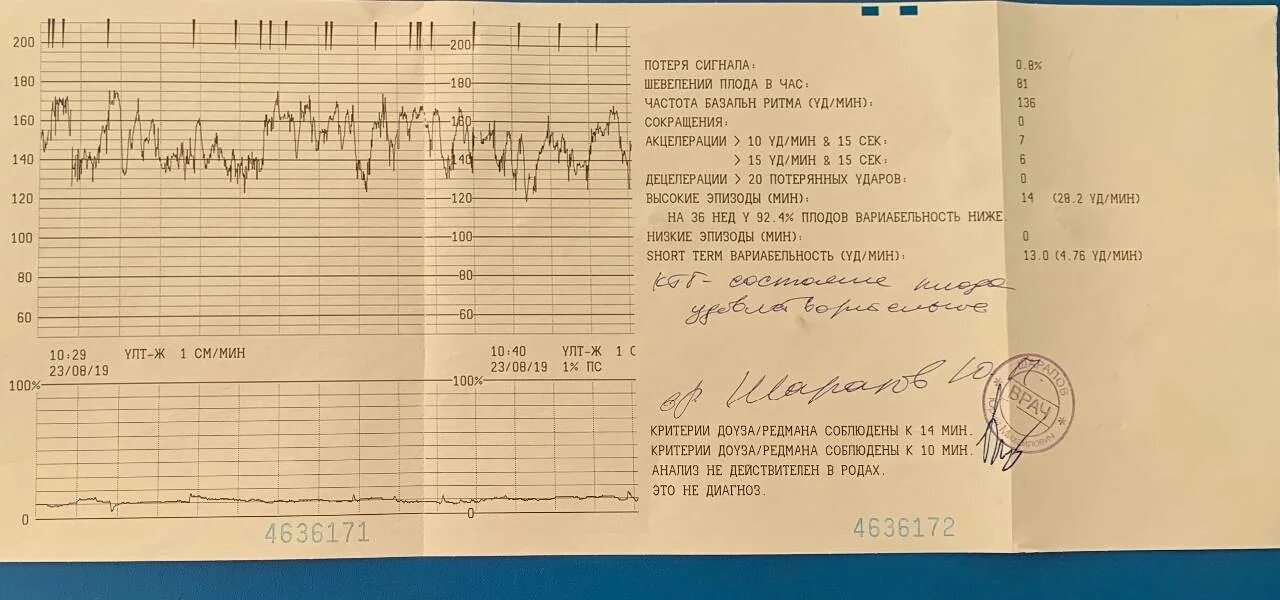 200
180
160
140
120
100
80
60
200
180
160
140
120
100
80
60
10:29 ҮЛТ-Ж 1 СМ/МИН
23/08/19
10:40 ҮЛТ-Ж 1 С
23/08/19 1% ПС
100%
0
100%
0
4636171
ПОТЕРЯ СИГНАЛА: 0.8%
ШЕВЕЛЕНИЙ ПЛОДА В ЧАС: 81
ЧАСТОТА БАЗАЛЬН РИТМА (УД/МИН): 136
СОКРАЩЕНИЯ: 0
АКЦЕЛЕРАЦИИ > 10 УД/МИН & 15 СЕК: 7
> 15 УД/МИН & 15 СЕК: 6
ДЕЦЕЛЕРАЦИИ > 20 ПОТЕРЯННЫХ УДАРОВ: 0
ВЫСОКИЕ ЭПИЗОДЫ (МИН): 14 (28.2 УД/МИН)
НА 36 НЕД У 92.4% ПЛОДОВ ВАРИАБЕЛЬНОСТЬ НИЖЕ.
НИЗКИЕ ЭПИЗОДЫ (МИН): 0
SHORT TERM ВАРИАБЕЛЬНОСТЬ (УД/МИН): 13.0 (4.76 УД/МИН)
КТГ - состояние плода
удовлетворительное
вр. Шарапов Ю.
ШАРАПОВ
ВРАЧ
КРИТЕРИИ ДОУЗА/РЕДМАНА СОБЛЮДЕНЫ К 14 МИН.
КРИТЕРИИ ДОУЗА/РЕДМАНА СОБЛЮДЕНЫ К 10 МИН.
АНАЛИЗ НЕ ДЕЙСТВИТЕЛЕН В РОДАХ.
ЭТО НЕ ДИАГНОЗ.
4636172